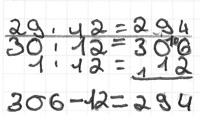 29 · 12 = 294
30 · 12 = 306
1 · 12 = 12
306 - 12 = 294